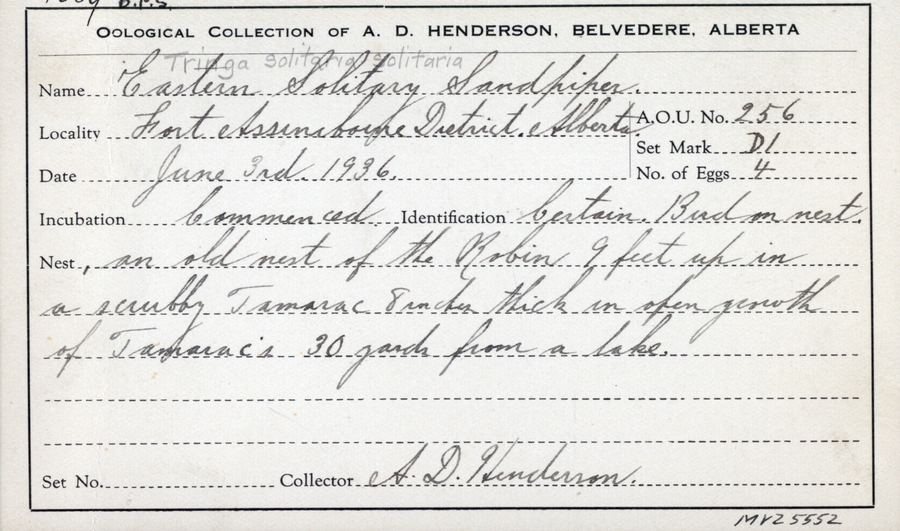 B.P.S.
OOLOGICAL COLLECTION OF A. D. HENDERSON, BELVEDERE, ALBERTA
Tringa solitaria solitaria
Name Eastern Solitary Sandpiper.
Locality Fort Assinaboine District. Alberta
A.O.U. No. 256
Set Mark D1
Date June 3rd. 1936.
No. of Eggs 4
Incubation Commenced Identification Certain. Bird on nest.
Nest, an old nest of the Robin 9 feet up in
a scrubby Tamarac 8 inches thick in open growth
of Tamarac's 30 yards from a lake.
Set No. Collector A. D. Henderson.
MVZ 5552